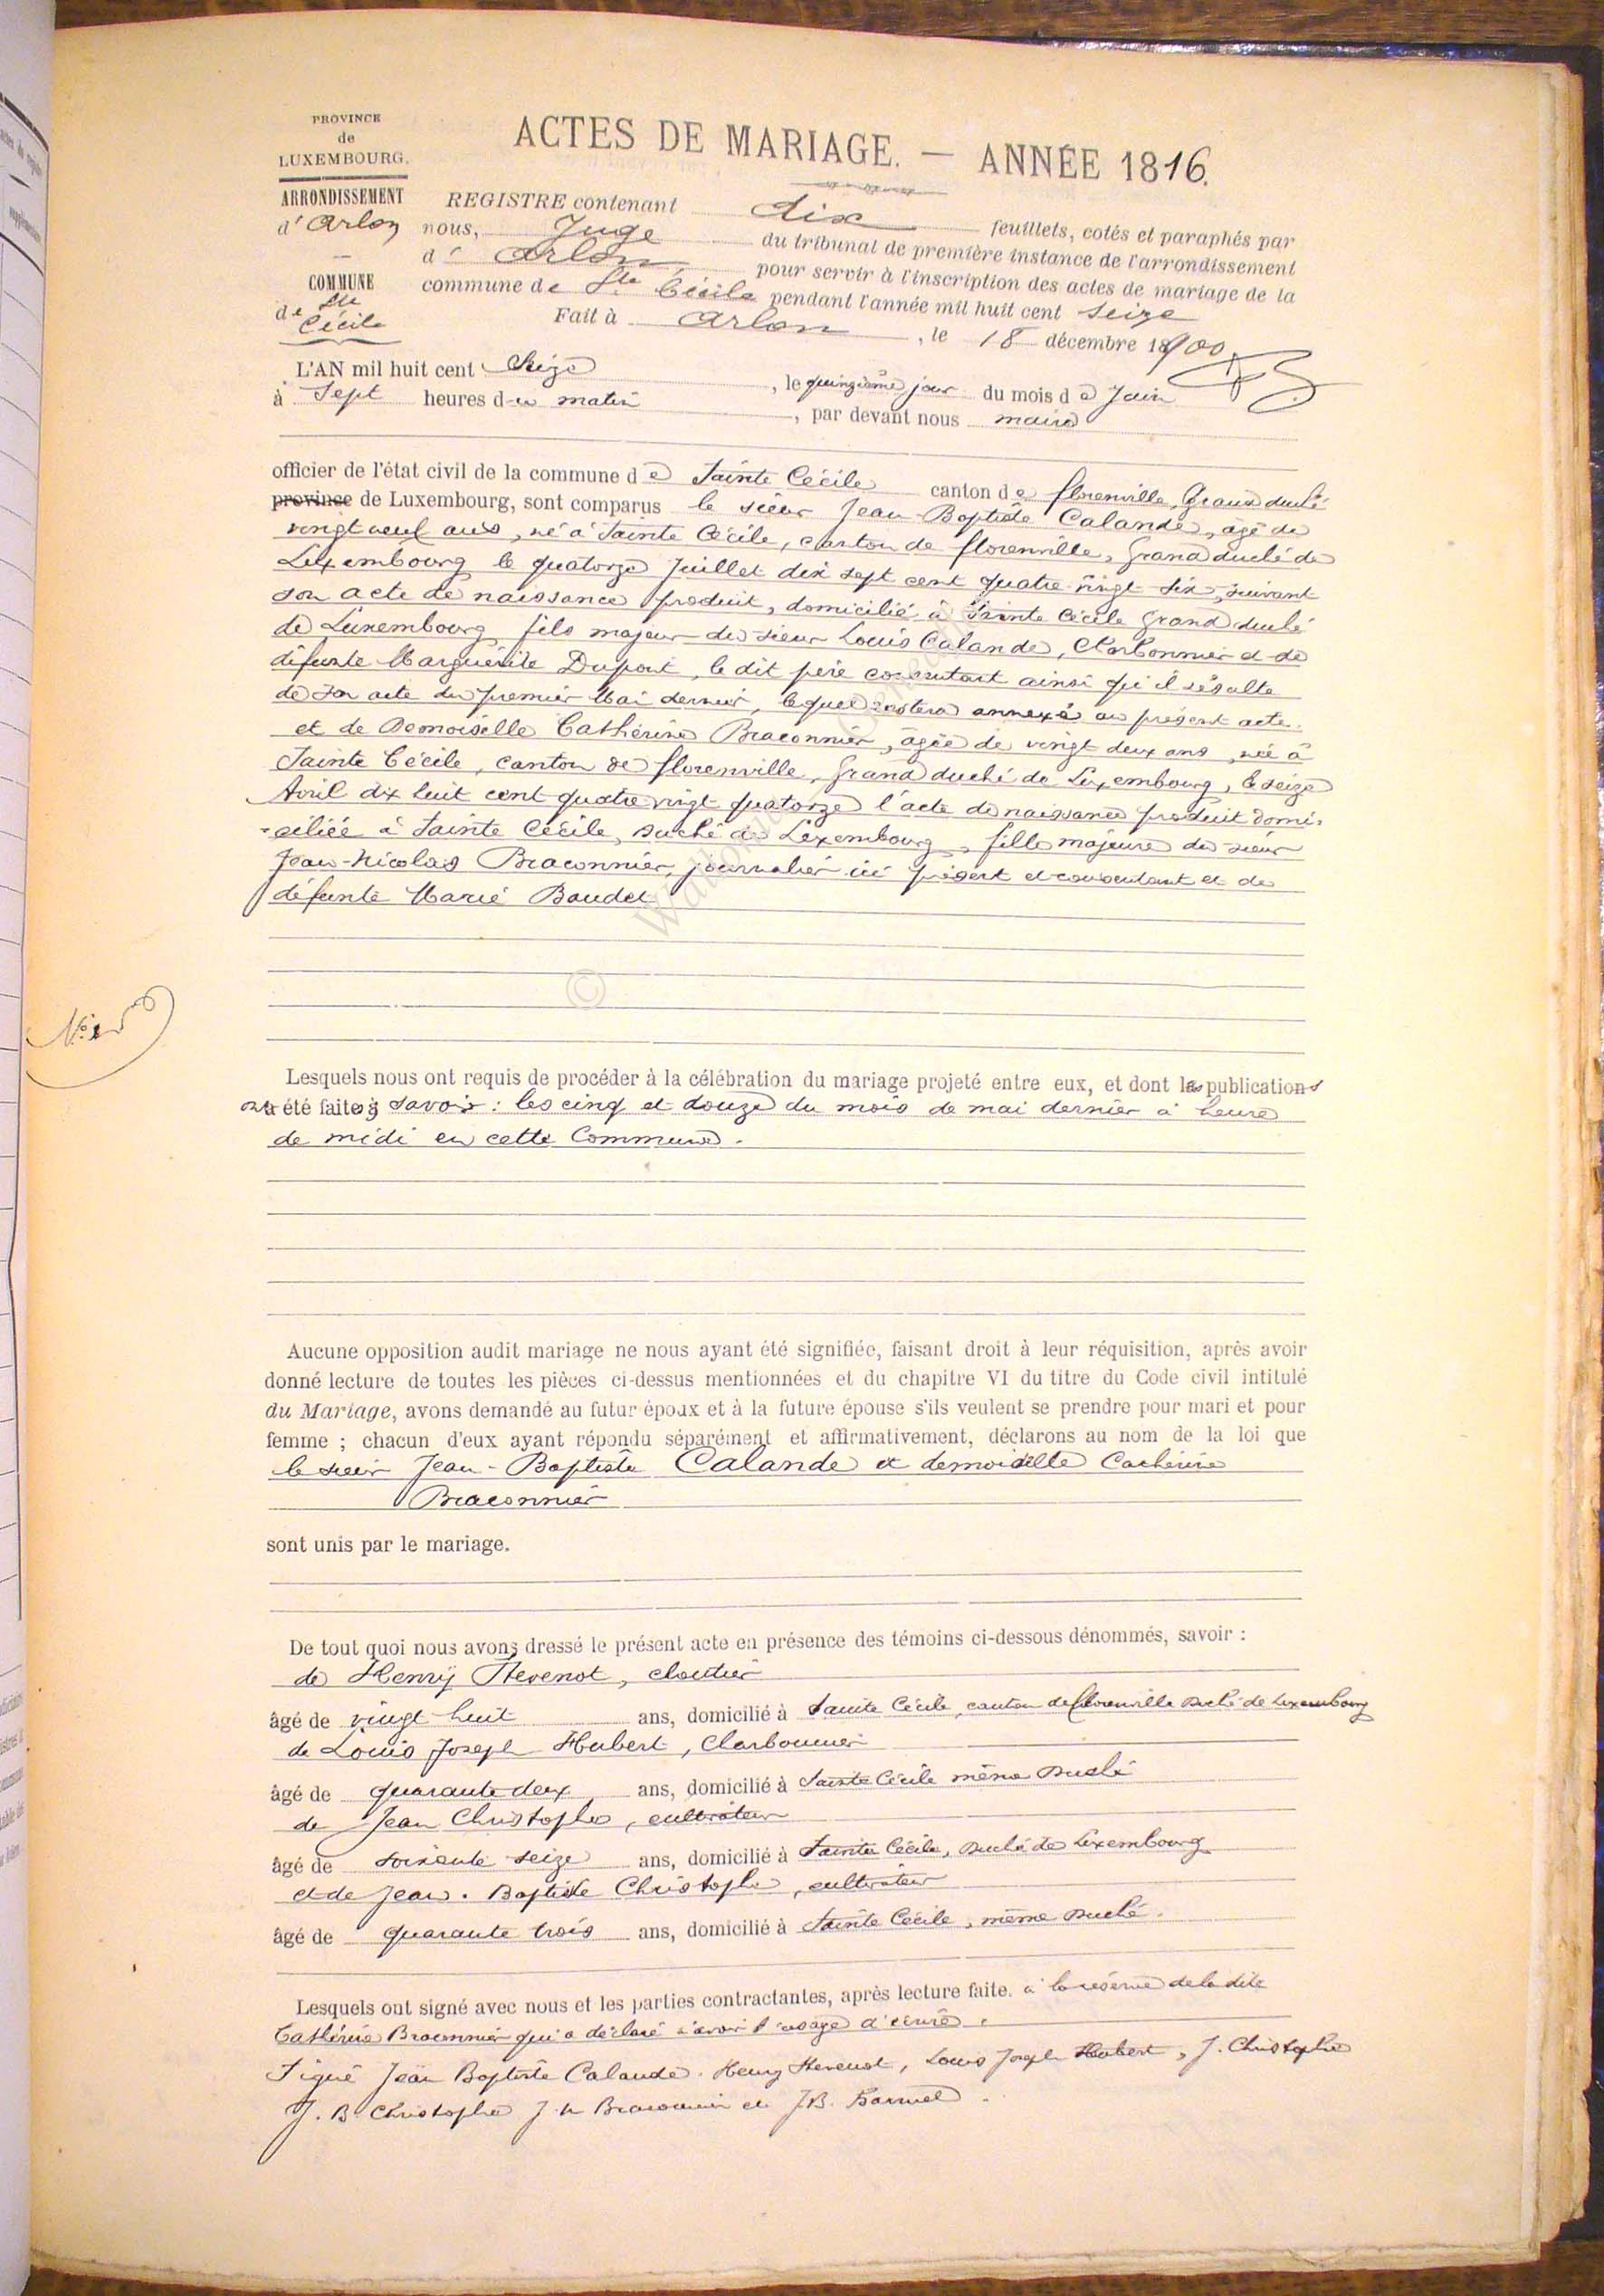 PROVINCE
de
LUXEMBOURG.
ARRONDISSEMENT
d'Arlon
COMMUNE
de Ste
Cécile
ACTES DE MARIAGE. — ANNÉE 1816.
REGISTRE contenant dix feuillets, cotés et paraphés par
nous, Juge du tribunal de première instance de l'arrondissement
d' Arlon pour servir à l'inscription des actes de mariage de la
commune de Ste Cécile pendant l'année mil huit cent seize
Fait à Arlon, le 18 décembre 1900
L'AN mil huit cent Seize, le quinzième jour du mois de Juin
à Sept heures du matin, par devant nous maire
officier de l'état civil de la commune de Sainte Cécile canton de florenville, Grand duché
province de Luxembourg, sont comparus le sieur Jean Baptiste Calande, âgé de
vingt neuf ans, né à Sainte Cécile, canton de florenville, Grand duché de
Luxembourg le quatorze Juillet dix sept cent quatre vingt six, suivant
son acte de naissance produit, domicilié à Sainte Cécile Grand duché
de Luxembourg fils majeur du sieur Louis Calande, Charbonnier et de
défunte Marguérite Dupont, le dit père consentant ainsi qu'il résulte
de son acte du premier Mai dernier, lequel restera annexé au présent acte.
et de Demoiselle Cathérine Braconnier, âgée de vingt deux ans, née à
Sainte Cécile, canton de florenville, Grand duché de Luxembourg, le seize
Avril dix huit cent quatre vingt quatorze l'acte de naissance produit domi-
-ciliée à Sainte Cécile, Duché de Luxembourg, fille majeure du sieur
Jean-Nicolas Braconnier, journalier ici présent et consentant et de
défunte Marie Baudet
No. 1
© Wallonia
Lesquels nous ont requis de procéder à la célébration du mariage projeté entre eux, et dont les publications
ont été faites à savoir : les cinq et douze du mois de mai dernier à heure
de midi en cette Commune.
Aucune opposition audit mariage ne nous ayant été signifiée, faisant droit à leur réquisition, après avoir
donné lecture de toutes les pièces ci-dessus mentionnées et du chapitre VI du titre du Code civil intitulé
du Mariage, avons demandé au futur époux et à la future épouse s'ils veulent se prendre pour mari et pour
femme ; chacun d'eux ayant répondu séparément et affirmativement, déclarons au nom de la loi que
le sieur Jean-Baptiste Calande et demoiselle Cathérine
Braconnier
sont unis par le mariage.
De tout quoi nous avons dressé le présent acte en présence des témoins ci-dessous dénommés, savoir :
de Henry Thevenot, cloutier
âgé de vingt huit ans, domicilié à Sainte Cécile, canton de florenville Duché de Luxembourg
de Louis Joseph Hubert, Charbonnier
âgé de quarante deux ans, domicilié à Sainte Cécile même Duché
de Jean Christophe, cultivateur
âgé de soixante seize ans, domicilié à Sainte Cécile, Duché de Luxembourg
et de Jean. Baptiste Christophe, cultivateur
âgé de quarante trois ans, domicilié à Sainte Cécile, même Duché.
Lesquels ont signé avec nous et les parties contractantes, après lecture faite. à la réserve de la dite
Cathérine Braconnier qui a déclaré n'avoir l'usage d'écrire.
Signé Jean Baptiste Calande. Henry Thevenot, Louis Joseph Hubert, J. Christophe
J. B. Christophe J. N Braconnier et J.B.